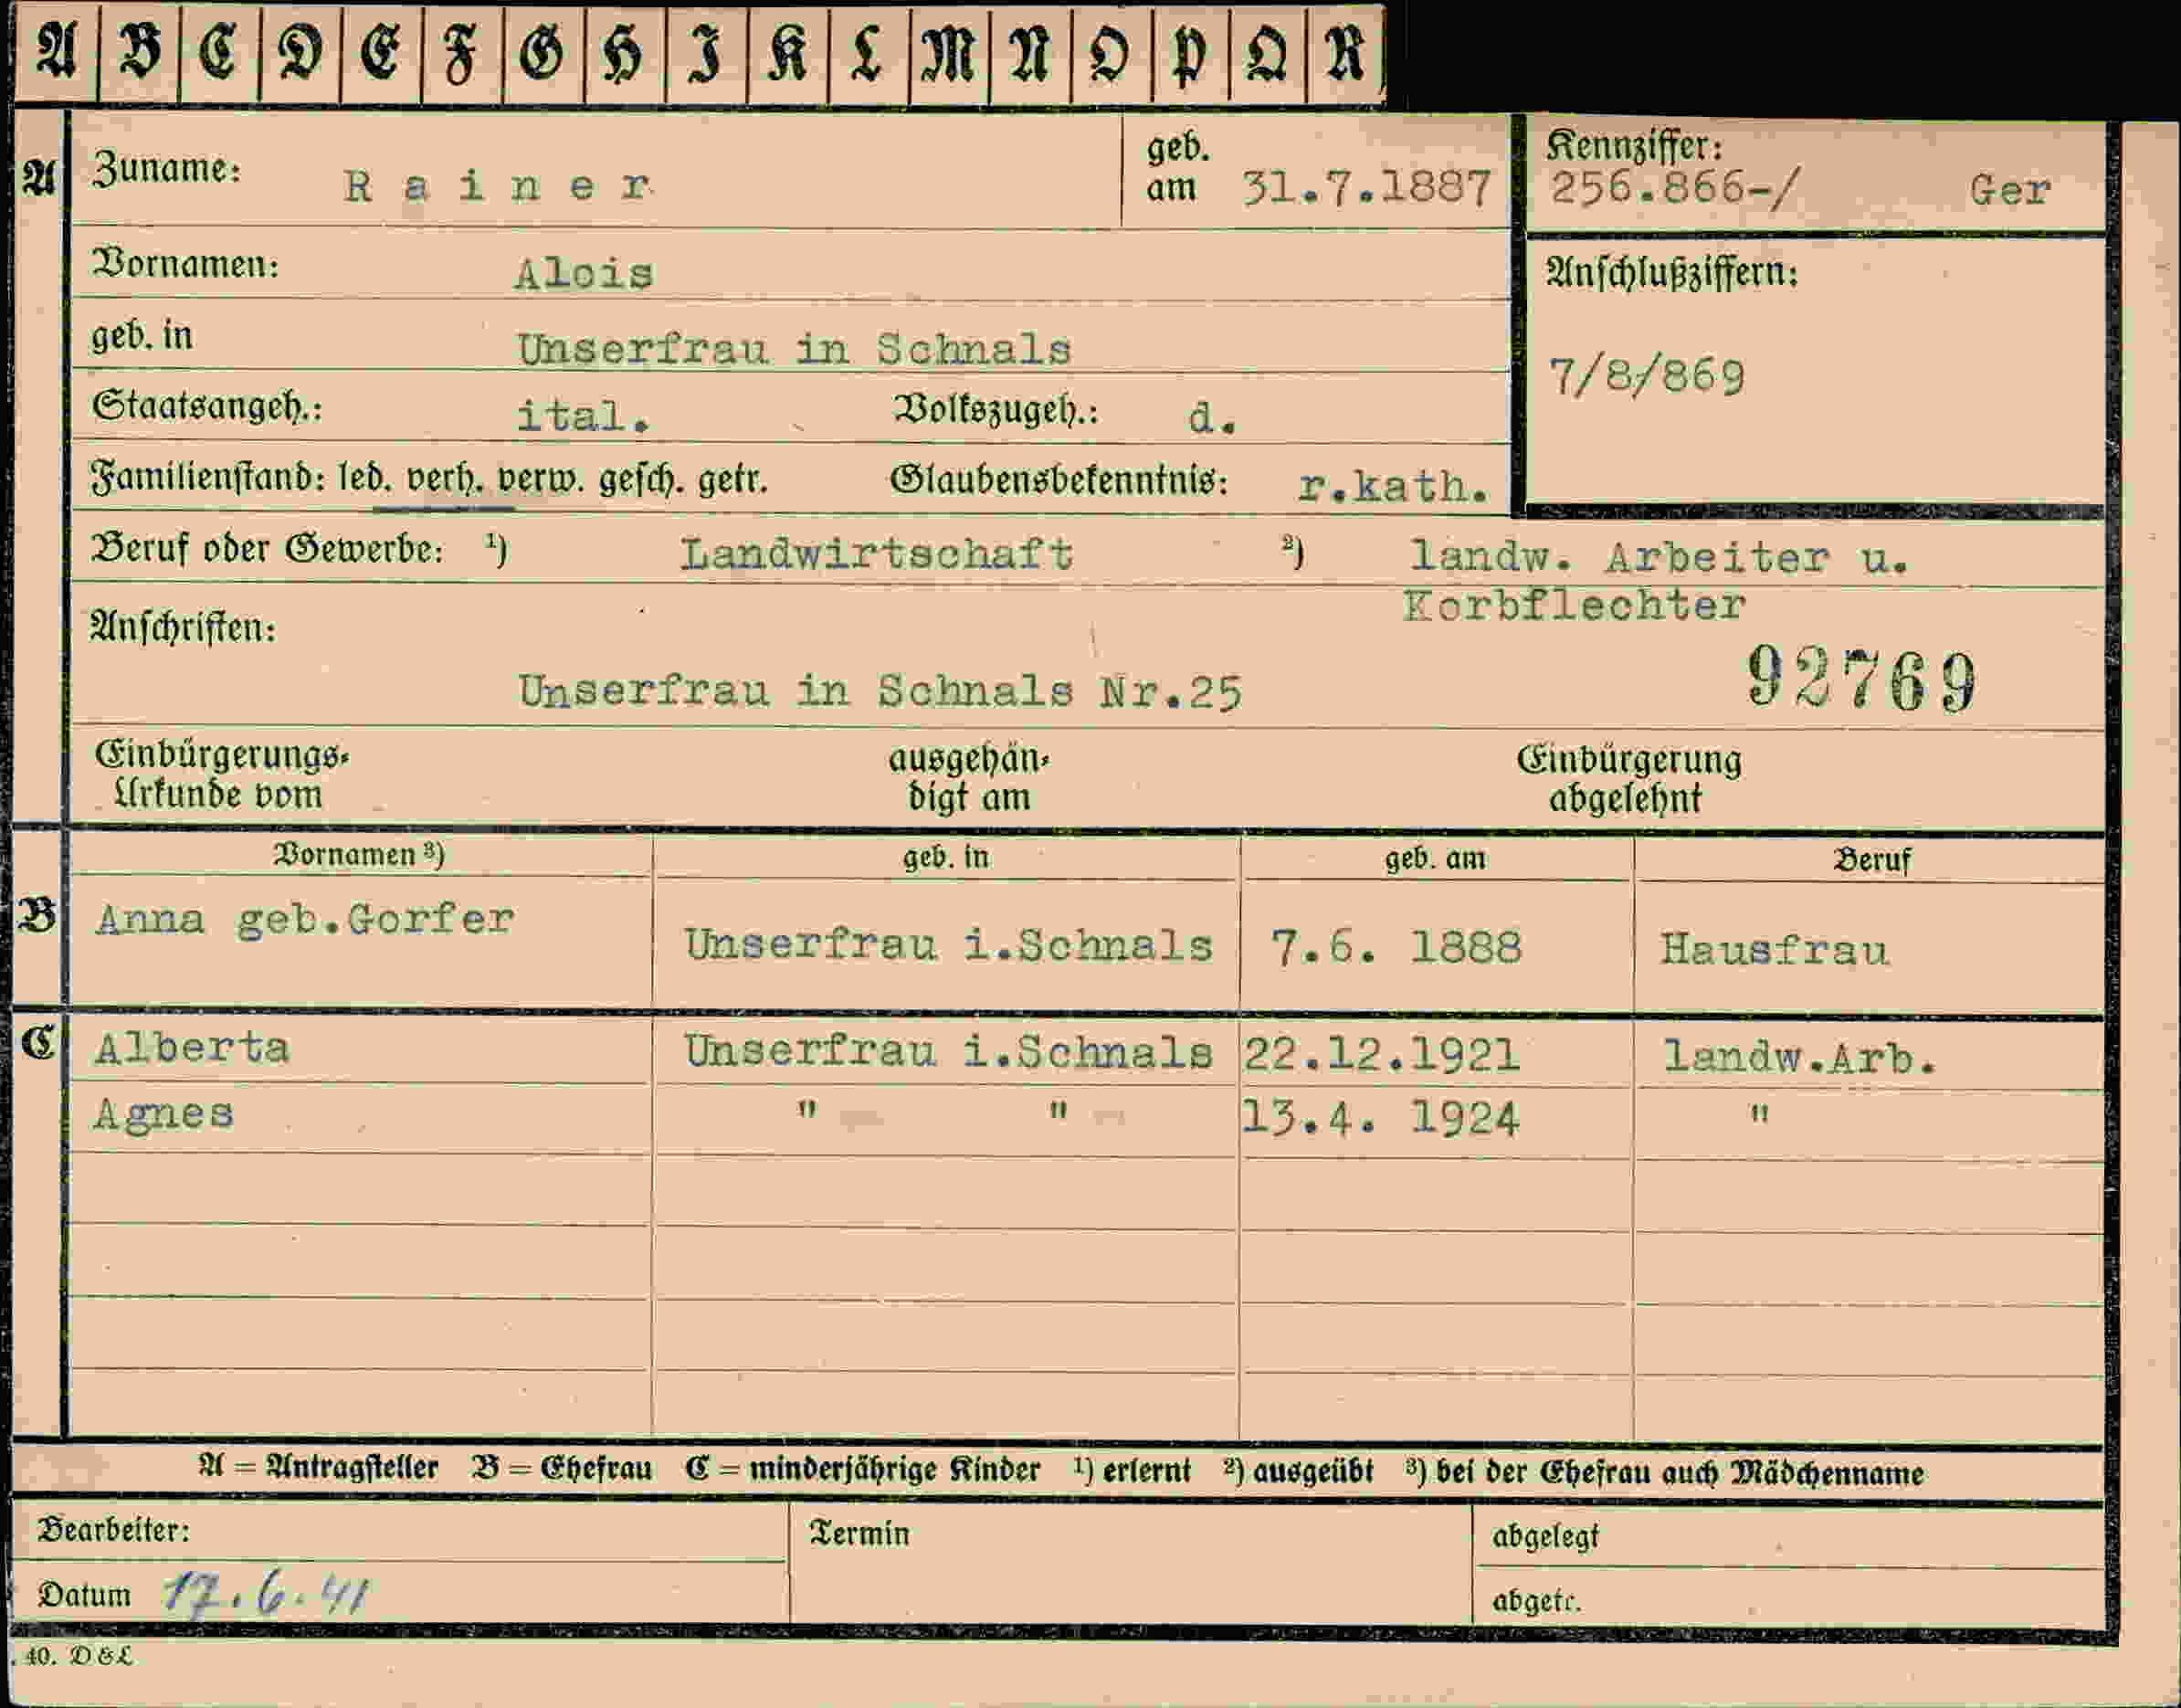 A B C D E F G H I K L M N O P Q R
A Zuname: Rainer geb. am 31.7.1887 Kennziffer: 256.866-/ Ger
Vornamen: Alois Anschlußziffern:
geb. in Unserfrau in Schnals 7/8/869
Staatsangeh.: ital. Volkszugeh.: d.
Familienstand: led. verh. verw. gesch. getr. Glaubensbekenntnis: r.kath.
Beruf oder Gewerbe: ¹) Landwirtschaft ²) landw. Arbeiter u.
Korbflechter
Anschriften:
Unserfrau in Schnals Nr.25 92769
Einbürgerungs- ausgehän- Einbürgerung
Urkunde vom digt am abgelehnt
Vornamen ³) geb. in geb. am Beruf
B Anna geb.Gorfer Unserfrau i.Schnals 7.6. 1888 Hausfrau
C Alberta Unserfrau i.Schnals 22.12.1921 landw.Arb.
Agnes " " 13.4. 1924 "
A = Antragsteller B = Ehefrau C = minderjährige Kinder ¹) erlernt ²) ausgeübt ³) bei der Ehefrau auch Mädchenname
Bearbeiter: Termin abgelegt
Datum 17.6.41 abgetr.
40. D&L